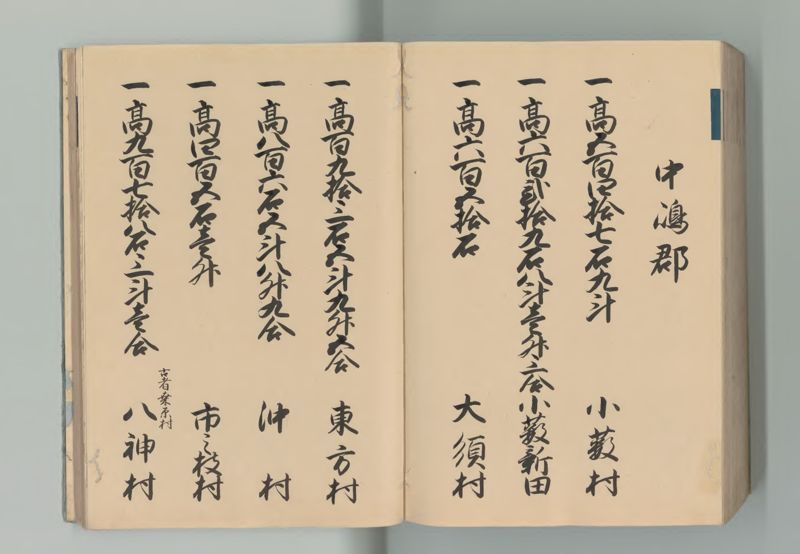 中嶋郡
一高五百四拾七石九斗 小薮村
一高六百弐拾九石八斗壱升六合 小薮新田
一高六百五拾石 大須村
一高百九拾三石五斗九升五合 東方村
一高八百六石五斗八升九合 沖村
一高四百五石壱升 市之枝村
古者桑原村
一高九百七拾八石三斗壱合 八神村